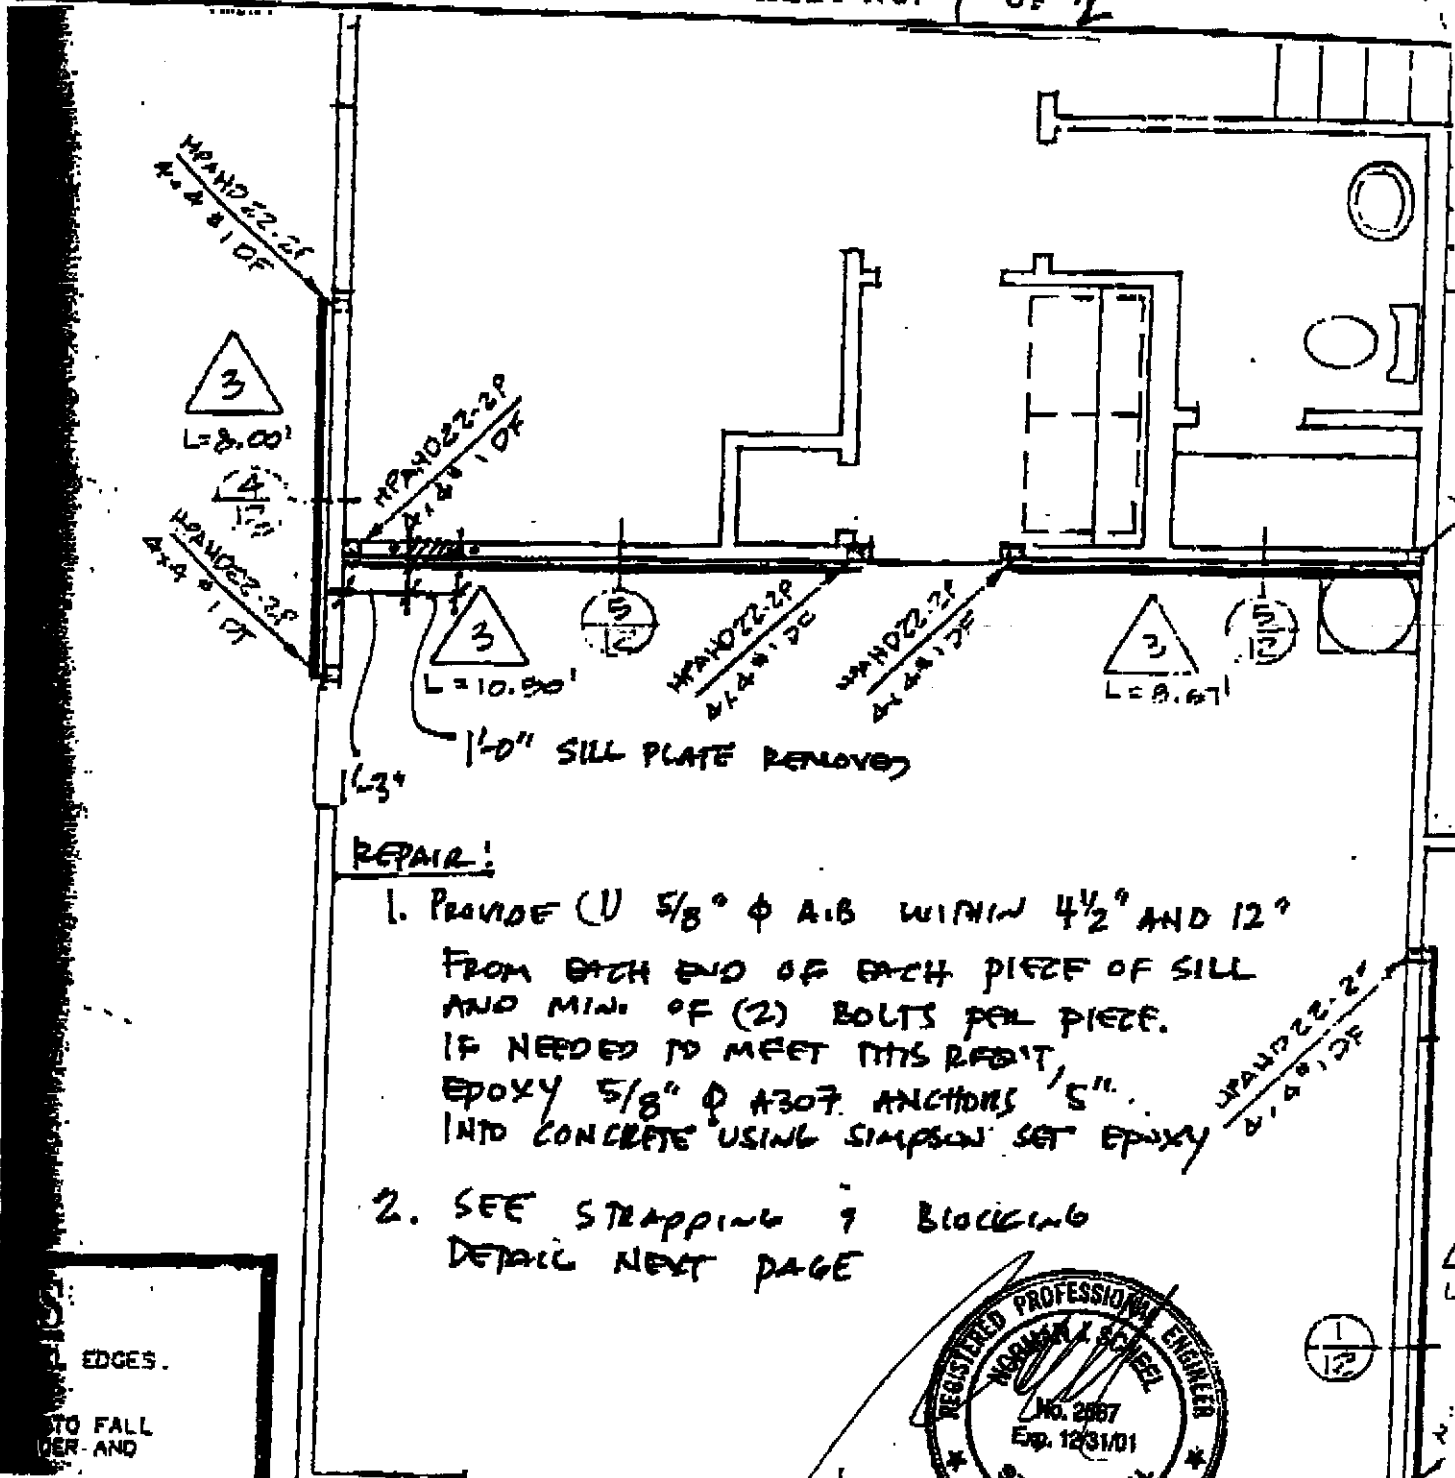 OF 2
HPAHD22-2P
4x4 #1 DF
3
L=8.00'
4
12
HPAHD22-2P
4x4 #1 DF
HPAHD22-2P
4x4 #1 DF
3
L=10.50'
5
12
HPAHD22-2P
4x4 #1 DF
HPAHD22-2P
4x4 #1 DF
3
L=8.67'
5
12
1'-0" SILL PLATE REMOVED
1'-3"
REPAIR:
1. PROVIDE (1) 5/8" φ A.B WITHIN 4½" AND 12"
FROM EACH END OF EACH PIECE OF SILL
AND MIN. OF (2) BOLTS PER PIECE.
IF NEEDED TO MEET THIS REQ'T,
EPOXY 5/8" φ A307 ANCHORS 5"
INTO CONCRETE USING SIMPSON SET EPOXY
HPAHD22-2P
4x4 #1 DF
2. SEE STRAPPING & BLOCKING
DETAIL NEXT PAGE
EDGES.
TO FALL
DER AND
REGISTERED PROFESSIONAL ENGINEER
NORMAN SCHEEL
No. 2687
Exp. 12/31/01
1
12